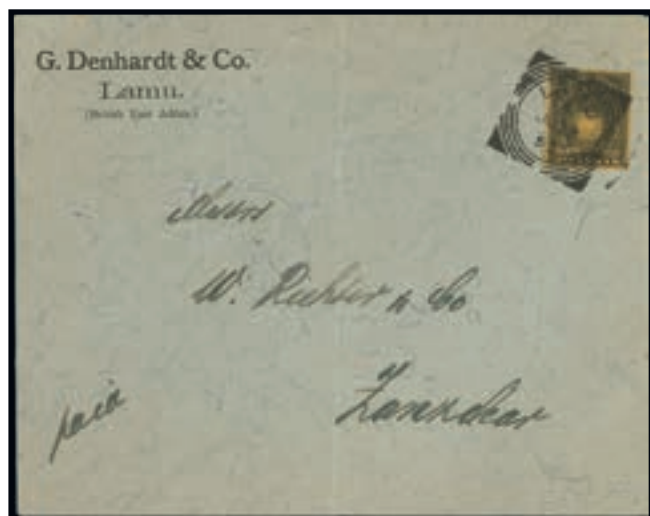 G. Denhardt & Co.
Lamu.
(British East Africa)
Messrs
W. Richter & Co
Zanzibar
paid